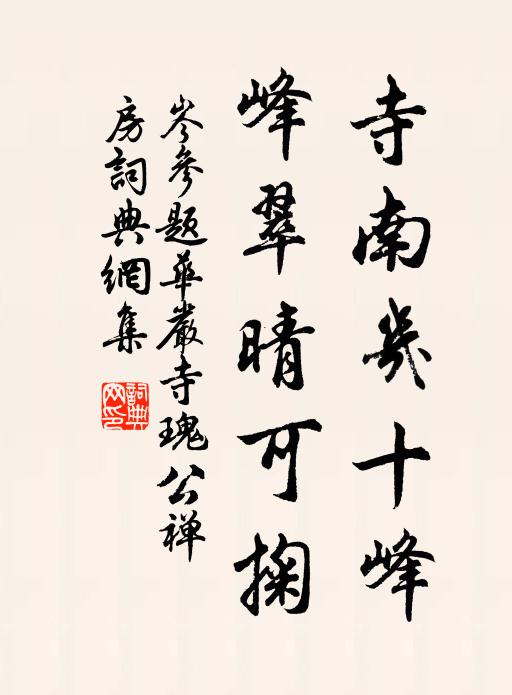 寺南幾十峰
峰翠晴可掬
岑參題華嚴寺瑰公禅
房詞典網集
詞典網印